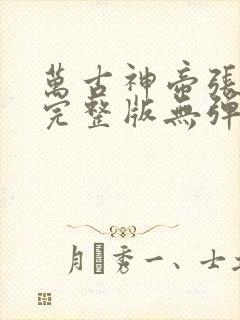 萬古神帝張
完整版無彈
月秀一、士